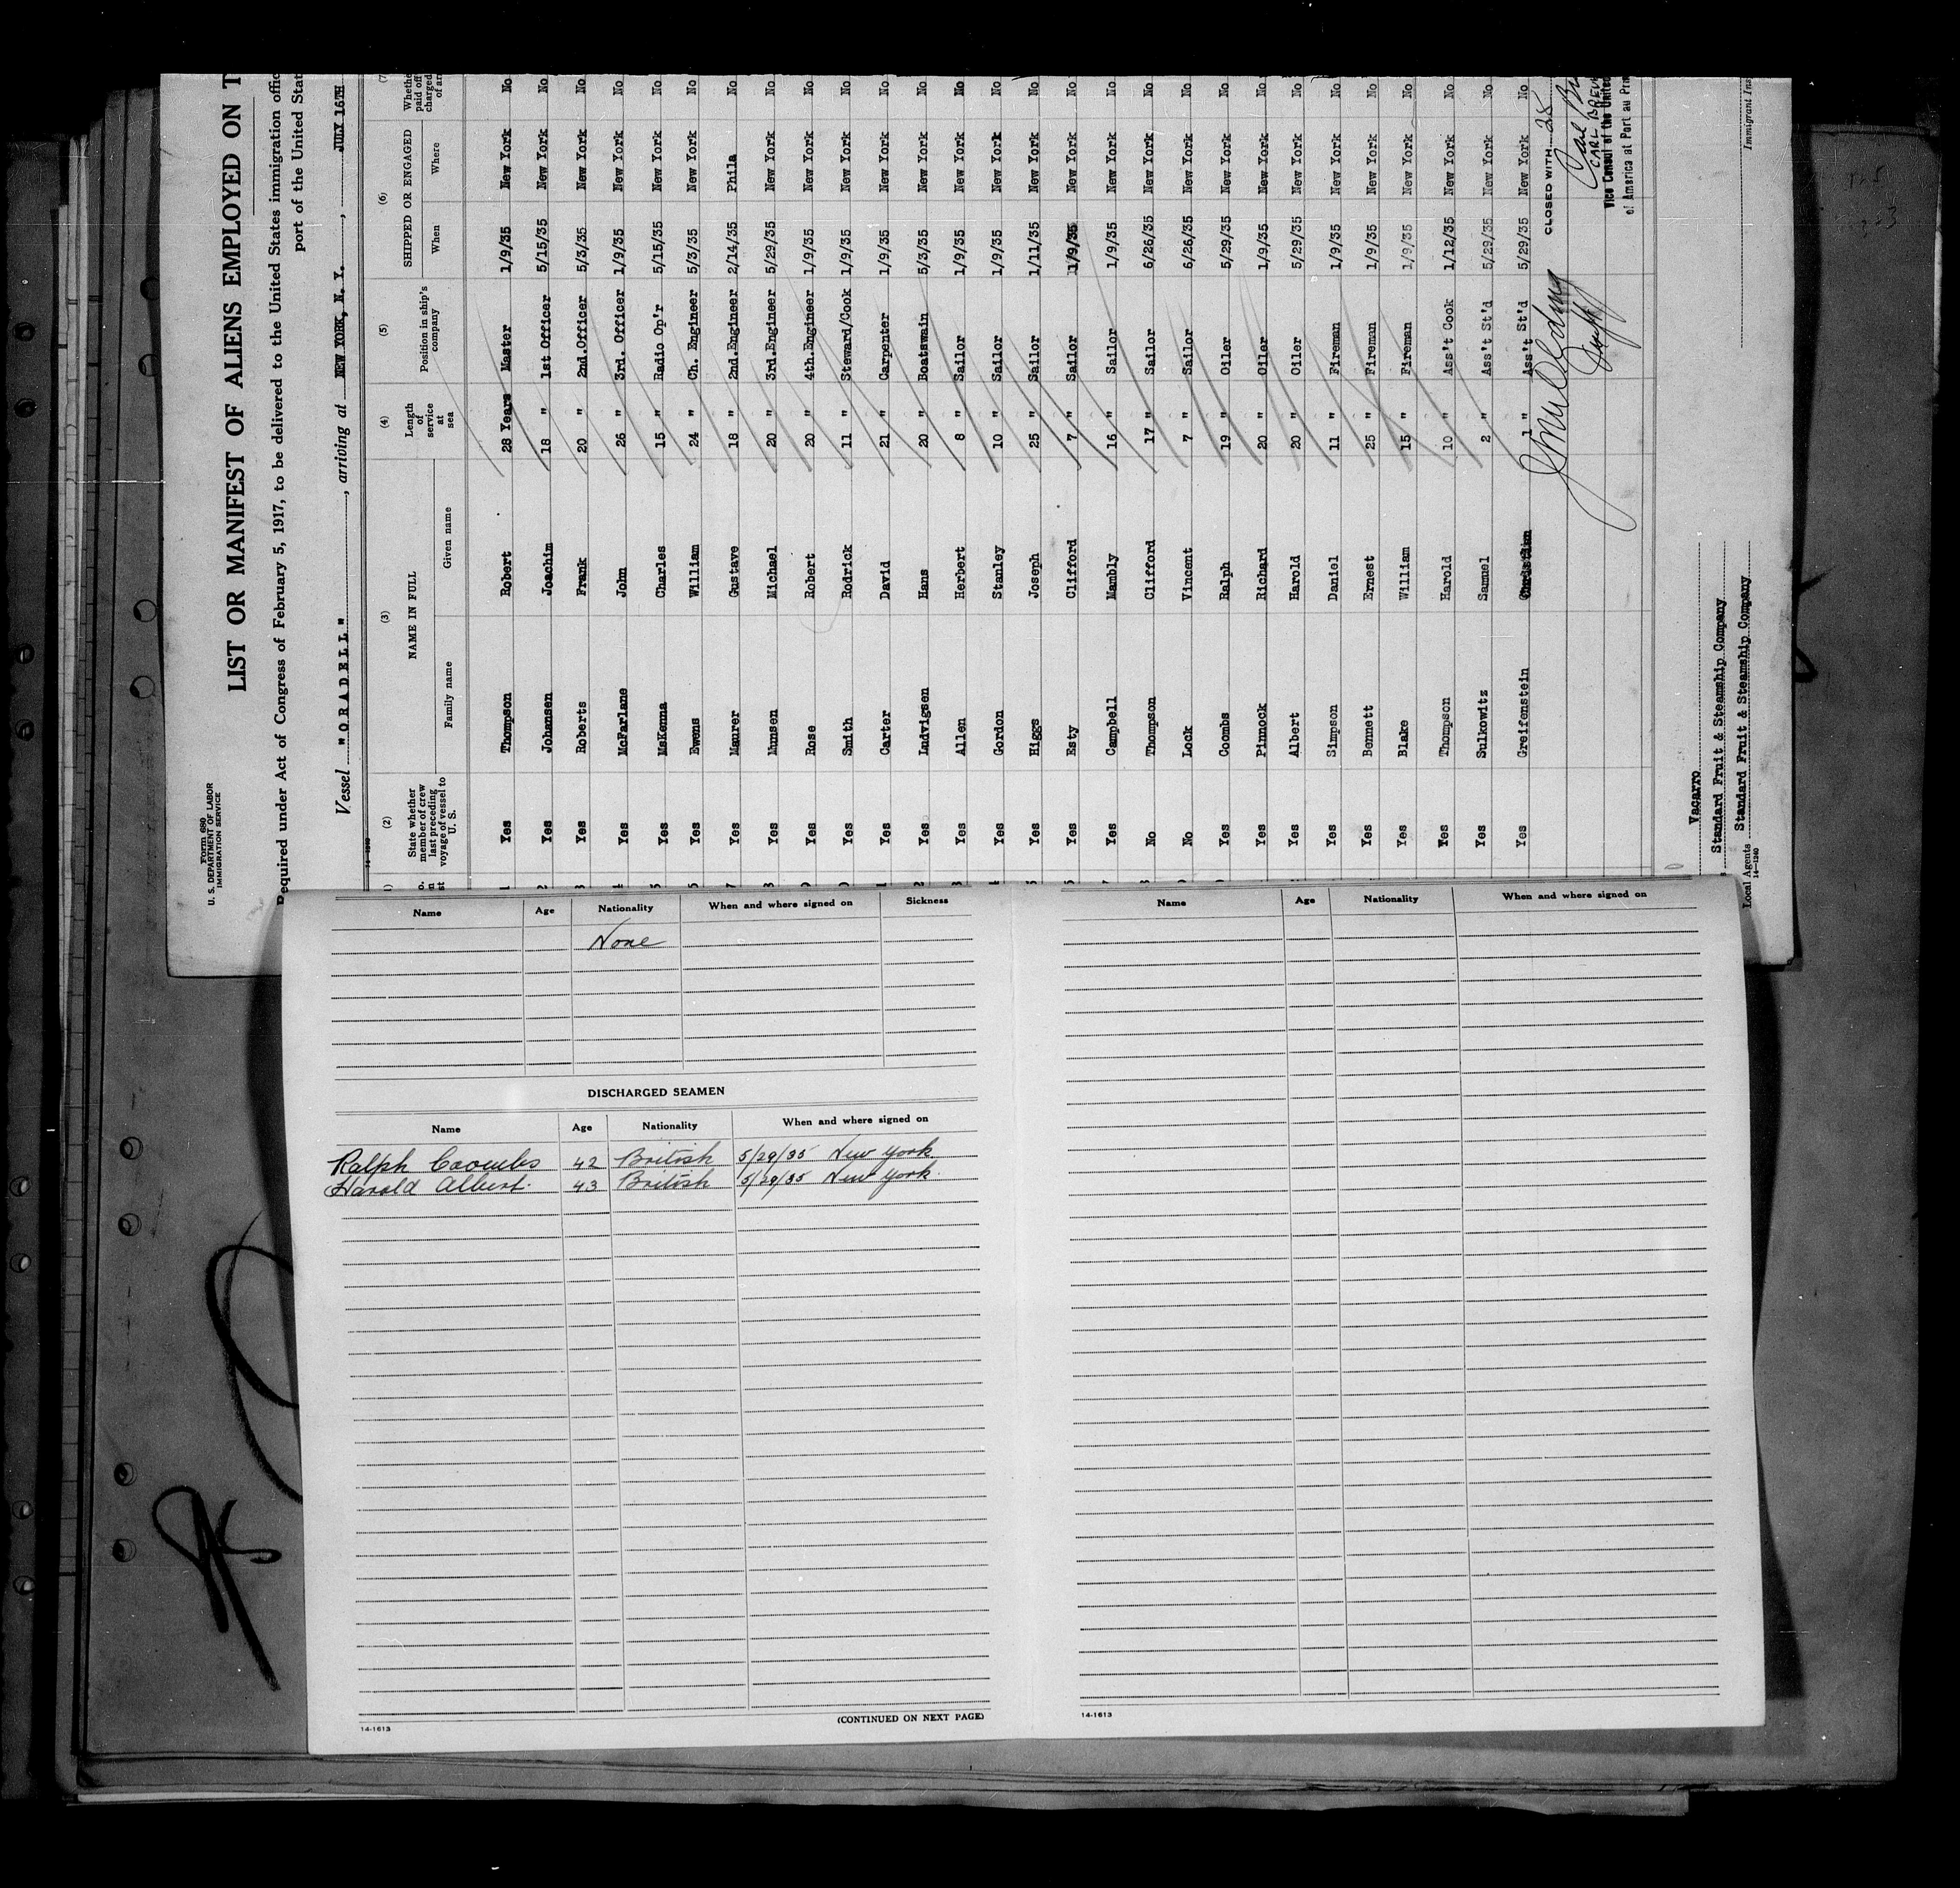 Form 680
U. S. DEPARTMENT OF LABOR
IMMIGRATION SERVICE
LIST OR MANIFEST OF ALIENS EMPLOYED ON T
Required under Act of Congress of February 5, 1917, to be delivered to the United States immigration offic
port of the United Stat
Vessel "ORADELL", arriving at NEW YORK, N. Y., JULY 16TH
(2) (3) (4) (5) (6) (7
State whether member of crew last preceding voyage of vessel to U. S. NAME IN FULL Family name Given name Length of service at sea Position in ship's company SHIPPED OR ENGAGED When Where Whethe paid off charged of ar
1 Yes Thompson Robert 28 Years Master 1/9/35 New York No
2 Yes Johansen Joachim 18 " 1st Officer 5/15/35 New York No
3 Yes Roberts Frank 20 " 2nd.Officer 5/3/35 New York No
4 Yes McFarlane John 26 " 3rd. Officer 1/9/35 New York No
5 Yes McKenna Charles 15 " Radio Op'r 5/15/35 New York No
Yes Ewens William 24 " Ch. Engineer 5/3/35 New York No
7 Yes Maurer Gustave 18 " 2nd.Engineer 2/14/35 Phila No
Yes Munsen Michael 20 " 3rd.Engineer 5/29/35 New York No
9 Yes Rose Robert 20 " 4th.Engineer 1/9/35 New York No
0 Yes Smith Rodrick 11 " Steward/Cook 1/9/35 New York No
1 Yes Carter David 21 " Carpenter 1/9/35 New York No
2 Yes Ludvigsen Hans 20 " Boatswain 5/3/35 New York No
3 Yes Allen Herbert 8 " Sailor 1/9/35 New York No
4 Yes Gordon Stanley 10 " Sailor 1/9/35 New York No
5 Yes Higgs Joseph 25 " Sailor 1/11/35 New York No
Yes Esty Clifford 7 " Sailor 1/9/35 New York No
7 Yes Campbell Mambly 16 " Sailor 1/9/35 New York No
No Thompson Clifford 17 " Sailor 6/26/35 New York No
No Lock Vincent 7 " Sailor 6/26/35 New York No
Yes Coombs Ralph 19 " Oiler 5/29/35 New York No
Yes Pinnock Richard 20 " Oiler 1/9/35 New York No
Yes Albert Harold 20 " Oiler 5/29/35 New York No
Yes Simpson Daniel 11 " Fireman 1/9/35 New York No
Yes Bennett Ernest 25 " Fireman 1/9/35 New York No
Yes Blake William 15 " Fireman 1/9/35 New York No
Yes Thompson Harold 10 " Ass't Cook 1/12/35 New York No
Yes Sulkowitz Samuel 2 " Ass't St'd 5/29/35 New York No
Yes Greifenstein Christian 1 " Ass't St'd 5/29/35 New York No
CLOSED WITH 28
CARL BREUE
Vice Consul of the United
of America at Port au Prin
Vacarro
Standard Fruit & Steamship Company
Local Agents Standard Fruit & Steamship Company
14-1240
Immigrant Ins
Name Age Nationality When and where signed on Sickness
None
DISCHARGED SEAMEN
Name Age Nationality When and where signed on
Ralph Coombs 42 British 5/29/35 New York
Harold Albert. 43 British 5/29/35 New York.
(CONTINUED ON NEXT PAGE)
14-1613
Name Age Nationality When and where signed on
14-1613